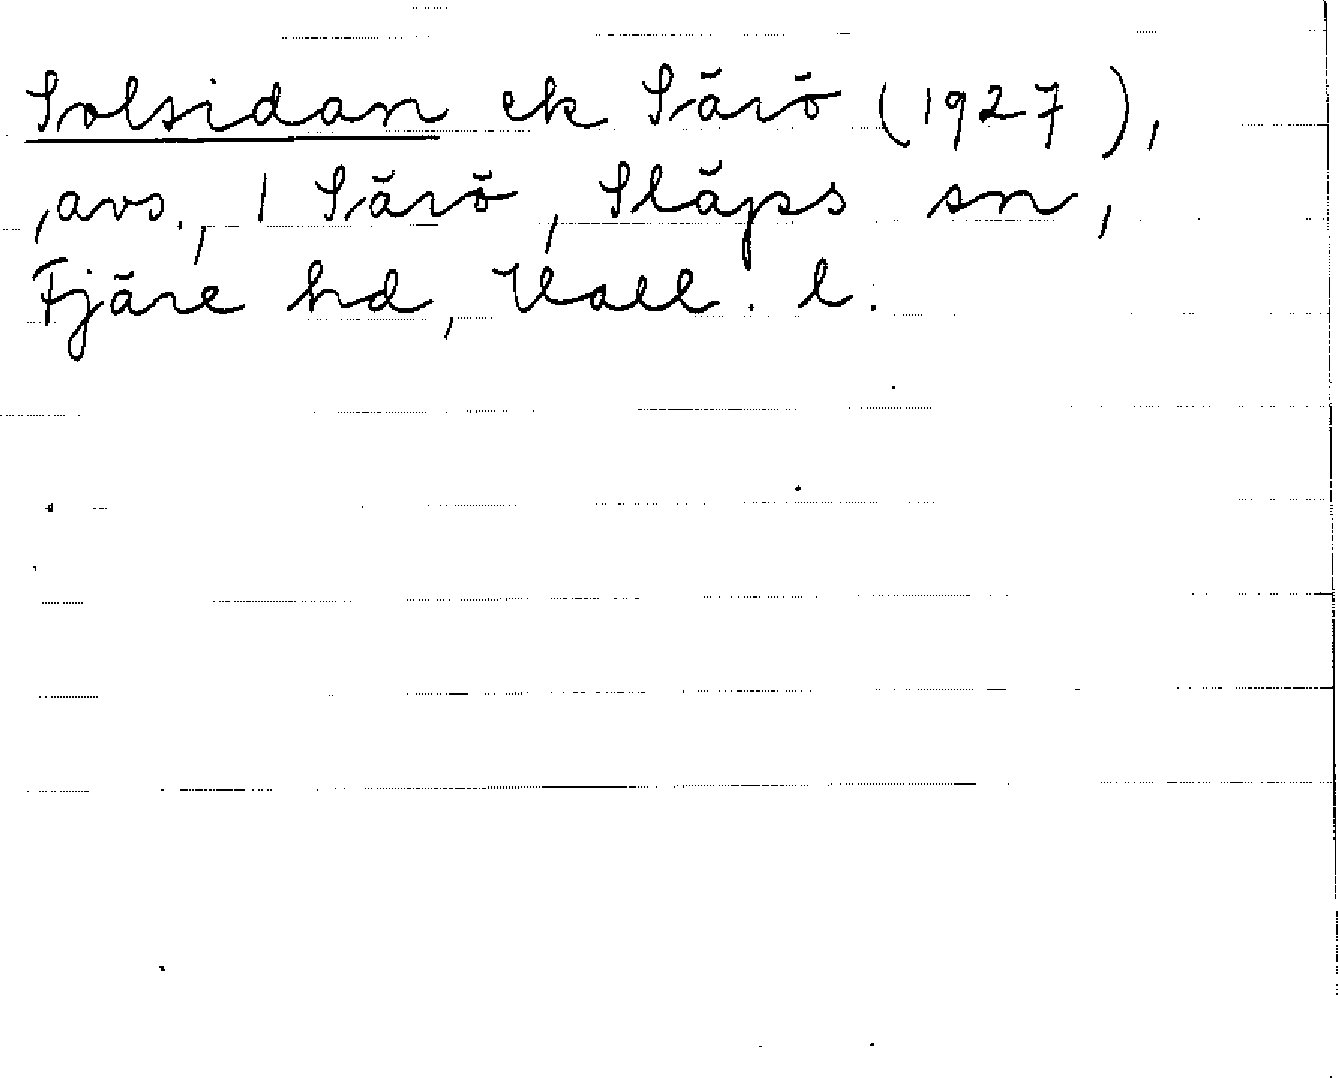 Solsidan ek Särö (1927),
, avs., 1 Särö, Släps sn,
Fjäre hd, Hall. l.